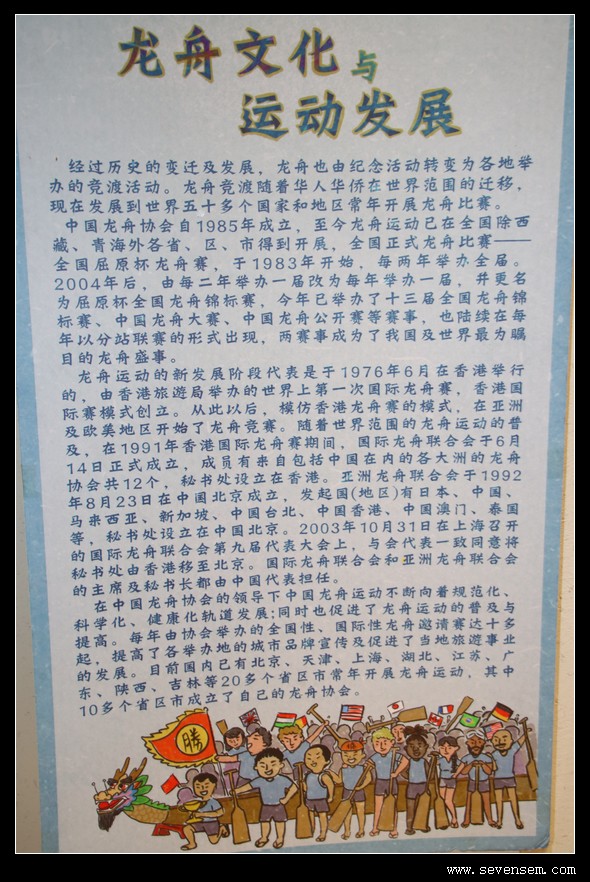 龙舟文化与
运动发展
经过历史的变迁及发展，龙舟也由纪念活动转变为各地举
办的竞渡活动。龙舟竞渡随着华人华侨在世界范围的迁移，
现在发展到世界五十多个国家和地区常年开展龙舟比赛。
中国龙舟协会自1985年成立，至今龙舟运动已在全国除西
藏、青海外各省、区、市得到开展，全国正式龙舟比赛——
全国屈原杯龙舟赛，于1983年开始，每两年举办全届。
2004年后，由每二年举办一届改为每年举办一届，并更名
为屈原杯全国龙舟锦标赛，今年已举办了十三届全国龙舟锦
标赛、中国龙舟大赛、中国龙舟公开赛等赛事，也陆续在每
年以分站联赛的形式出现，两赛事成为了我国及世界最为瞩
目的龙舟盛事。
龙舟运动的新发展阶段代表是于1976年6月在香港举行
的，由香港旅遊局举办的世界上第一次国际龙舟赛，香港国
际赛模式创立。从此以后，模仿香港龙舟赛的模式，在亚洲
及欧美地区开始了龙舟竞赛。随着世界范围的龙舟运动的普
及，在1991年香港国际龙舟赛期间，国际龙舟联合会于6月
14日正式成立，成员有来自包括中国在内的各大洲的龙舟
协会共12个，秘书处设立在香港。亚洲龙舟联合会于1992
年8月23日在中国北京成立，发起国(地区)有日本、中国、
马来西亚、新加坡、中国台北、中国香港、中国澳门、泰国
等，秘书处设立在中国北京。2003年10月31日在上海召开
的国际龙舟联合会第九届代表大会上，与会代表一致同意将
秘书处由香港移至北京。国际龙舟联合会和亚洲龙舟联合会
的主席及秘书长都由中国代表担任。
在中国龙舟协会的领导下中国龙舟运动不断向着规范化、
科学化、健康化轨道发展;同时也促进了龙舟运动的普及与
提高。每年由协会举办的全国性、国际性龙舟邀请赛达十多
起，提高了各举办地的城市品牌宣传及促进了当地旅遊事业
的发展。目前国内已有北京、天津、上海、湖北、江苏、广
东、陕西、吉林等20多个省区市常年开展龙舟运动，其中
10多个省区市成立了自己的龙舟协会。
勝
www.sevensem.com